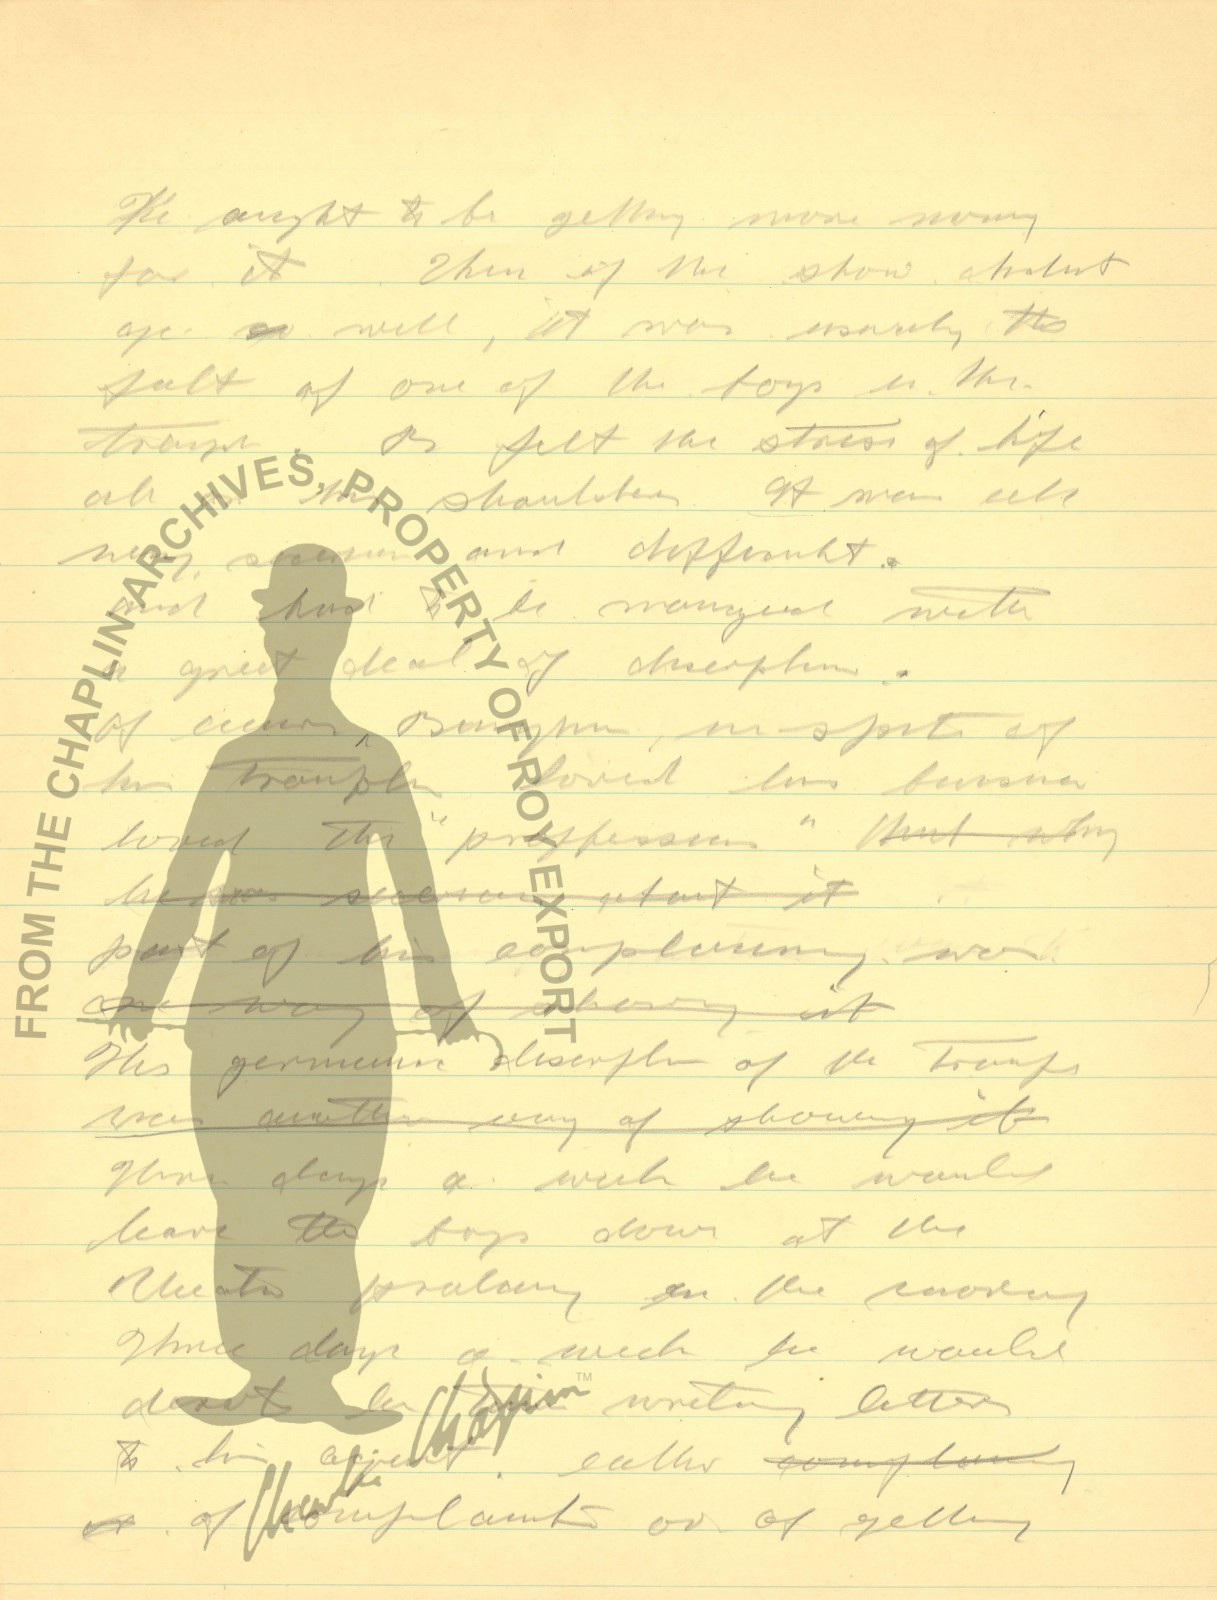 He aught to be getting more money
for it. Then if the show dident
go so well, it was usualy the
falt of one of the boys in the
troupe. B felt the stress of life
all on his shoulders It was all
very serious and difficult.
and had to be managed with
a great deal of discipline.
Of course, Bangman, in spite of
his troubles loved his buisness
loved the "proffession" that why
he was serious about it
part of his complaining was
one way of showing it
The discipline of the troupe
was another way of showing it
Three days a week he would
have the boys down at the
theatre in the morning
Three days a week he would
devote his time writing letters
to his agent. either complaining
of complaints or of getting
FROM THE CHAPLIN ARCHIVES, PROPERTY OF ROY EXPORT
Charlie Chaplin™